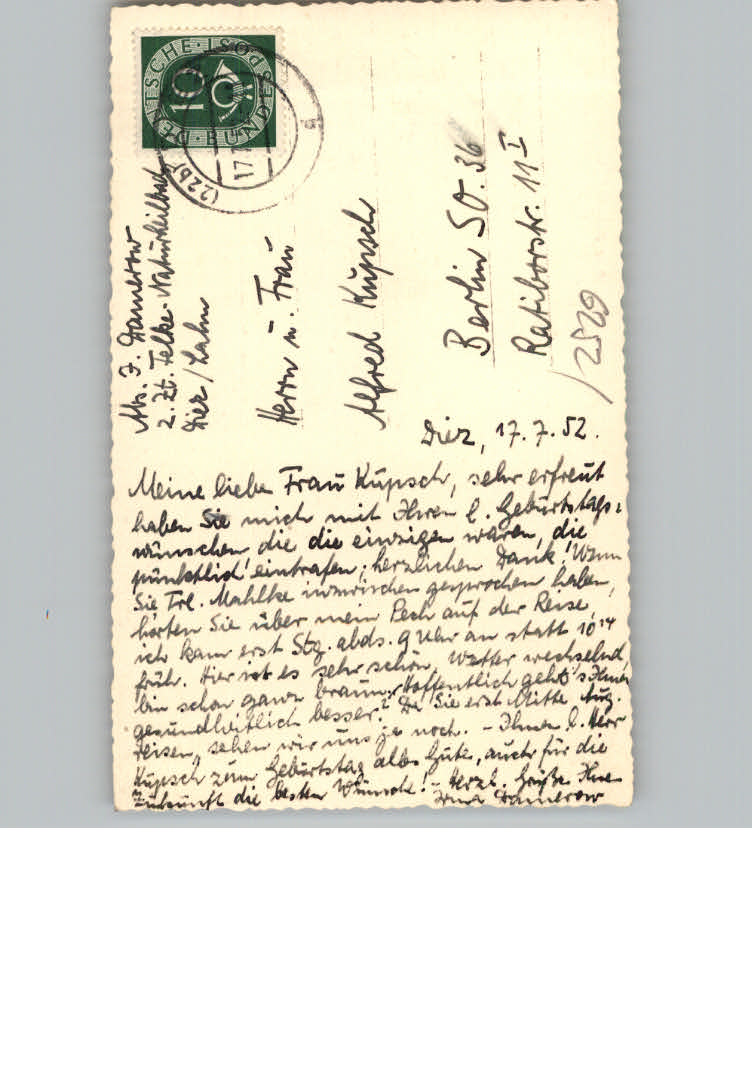 DEUTSCHE BUNDESPOST
10
(22b)
17.7
a
Abs. I. Damerow
z. Zt. Felke-Naturheilbad
Diez / Lahn
Herrn u. Frau
Alfred Kupsch
Berlin SO. 36
Ratiborstr. 11 I
/2529
Diez, 17. 7. 52.
Meine liebe Frau Kupsch, sehr erfreut
haben Sie mich mit Ihren l. Geburtstags-
wünschen die die einzigen waren, die
pünktlich eintrafen; herzlichen Dank! Wenn
Sie Frl. Mahlke inzwischen gesprochen haben,
hörten Sie über mein Pech auf der Reise,
ich kam erst Stg. abds. 9 Uhr an statt 10 14
früh. Hier ist es sehr schön, Wetter wechselnd,
bin schon ganz braun. Hoffentlich geht's Ihnen
gesundheitlich besser? Da Sie erst Mitte Aug.
reisen, sehen wir uns ja noch. – Ihnen l. Herr
Kupsch zum Geburtstag alles Gute, auch für die
Zukunft die besten Wünsche! – Herzl. Grüße Ihre
Irma Damerow